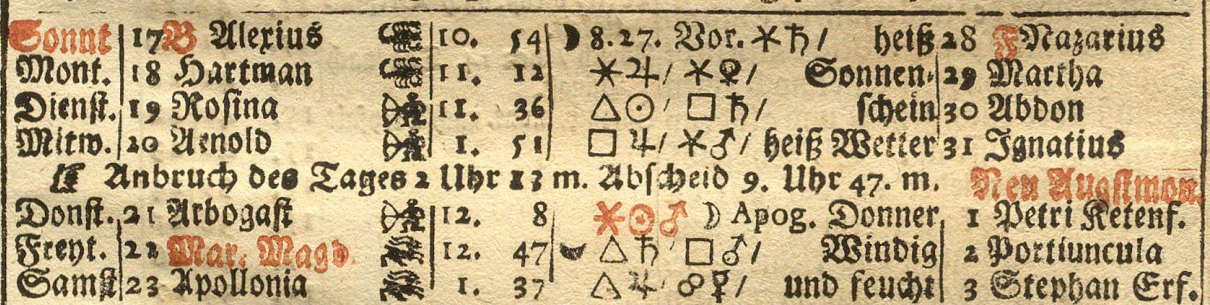 Sonnt 17 B Alexius ♏ 10. 54 ☽ 8. 27. Vor. ⚹ ♄ / heiß 28 F Nazarius
Mont. 18 Hartman ♏ 11. 12 ⚹ ♃ / ⚹ ♀ / Sonnen- 29 Martha
Dienst. 19 Rosina ♐ 11. 36 △ ☉ / □ ♄ / schein 30 Abdon
Mitw. 20 Arnold ♐ 1. 51 □ ♃ / ⚹ ♂ / heiß Wetter 31 Ignatius
Anbruch des Tages 2 Uhr 13 m. Abscheid 9. Uhr 47. m. Neu Augstmon.
Donst. 21 Arbogast ♐ 12. 8 ⚹ ☉ ♂ ☽ Apog. Donner 1 Petri Ketenf.
Freyt. 22 Mar. Magd. 12. 47 △ ♄ / □ ♂ / Windig 2 Portiuncula
Samst 23 Apollonia 1. 37 △ ♃ / ☍ ☿ / und feucht 3 Stephan Erf.